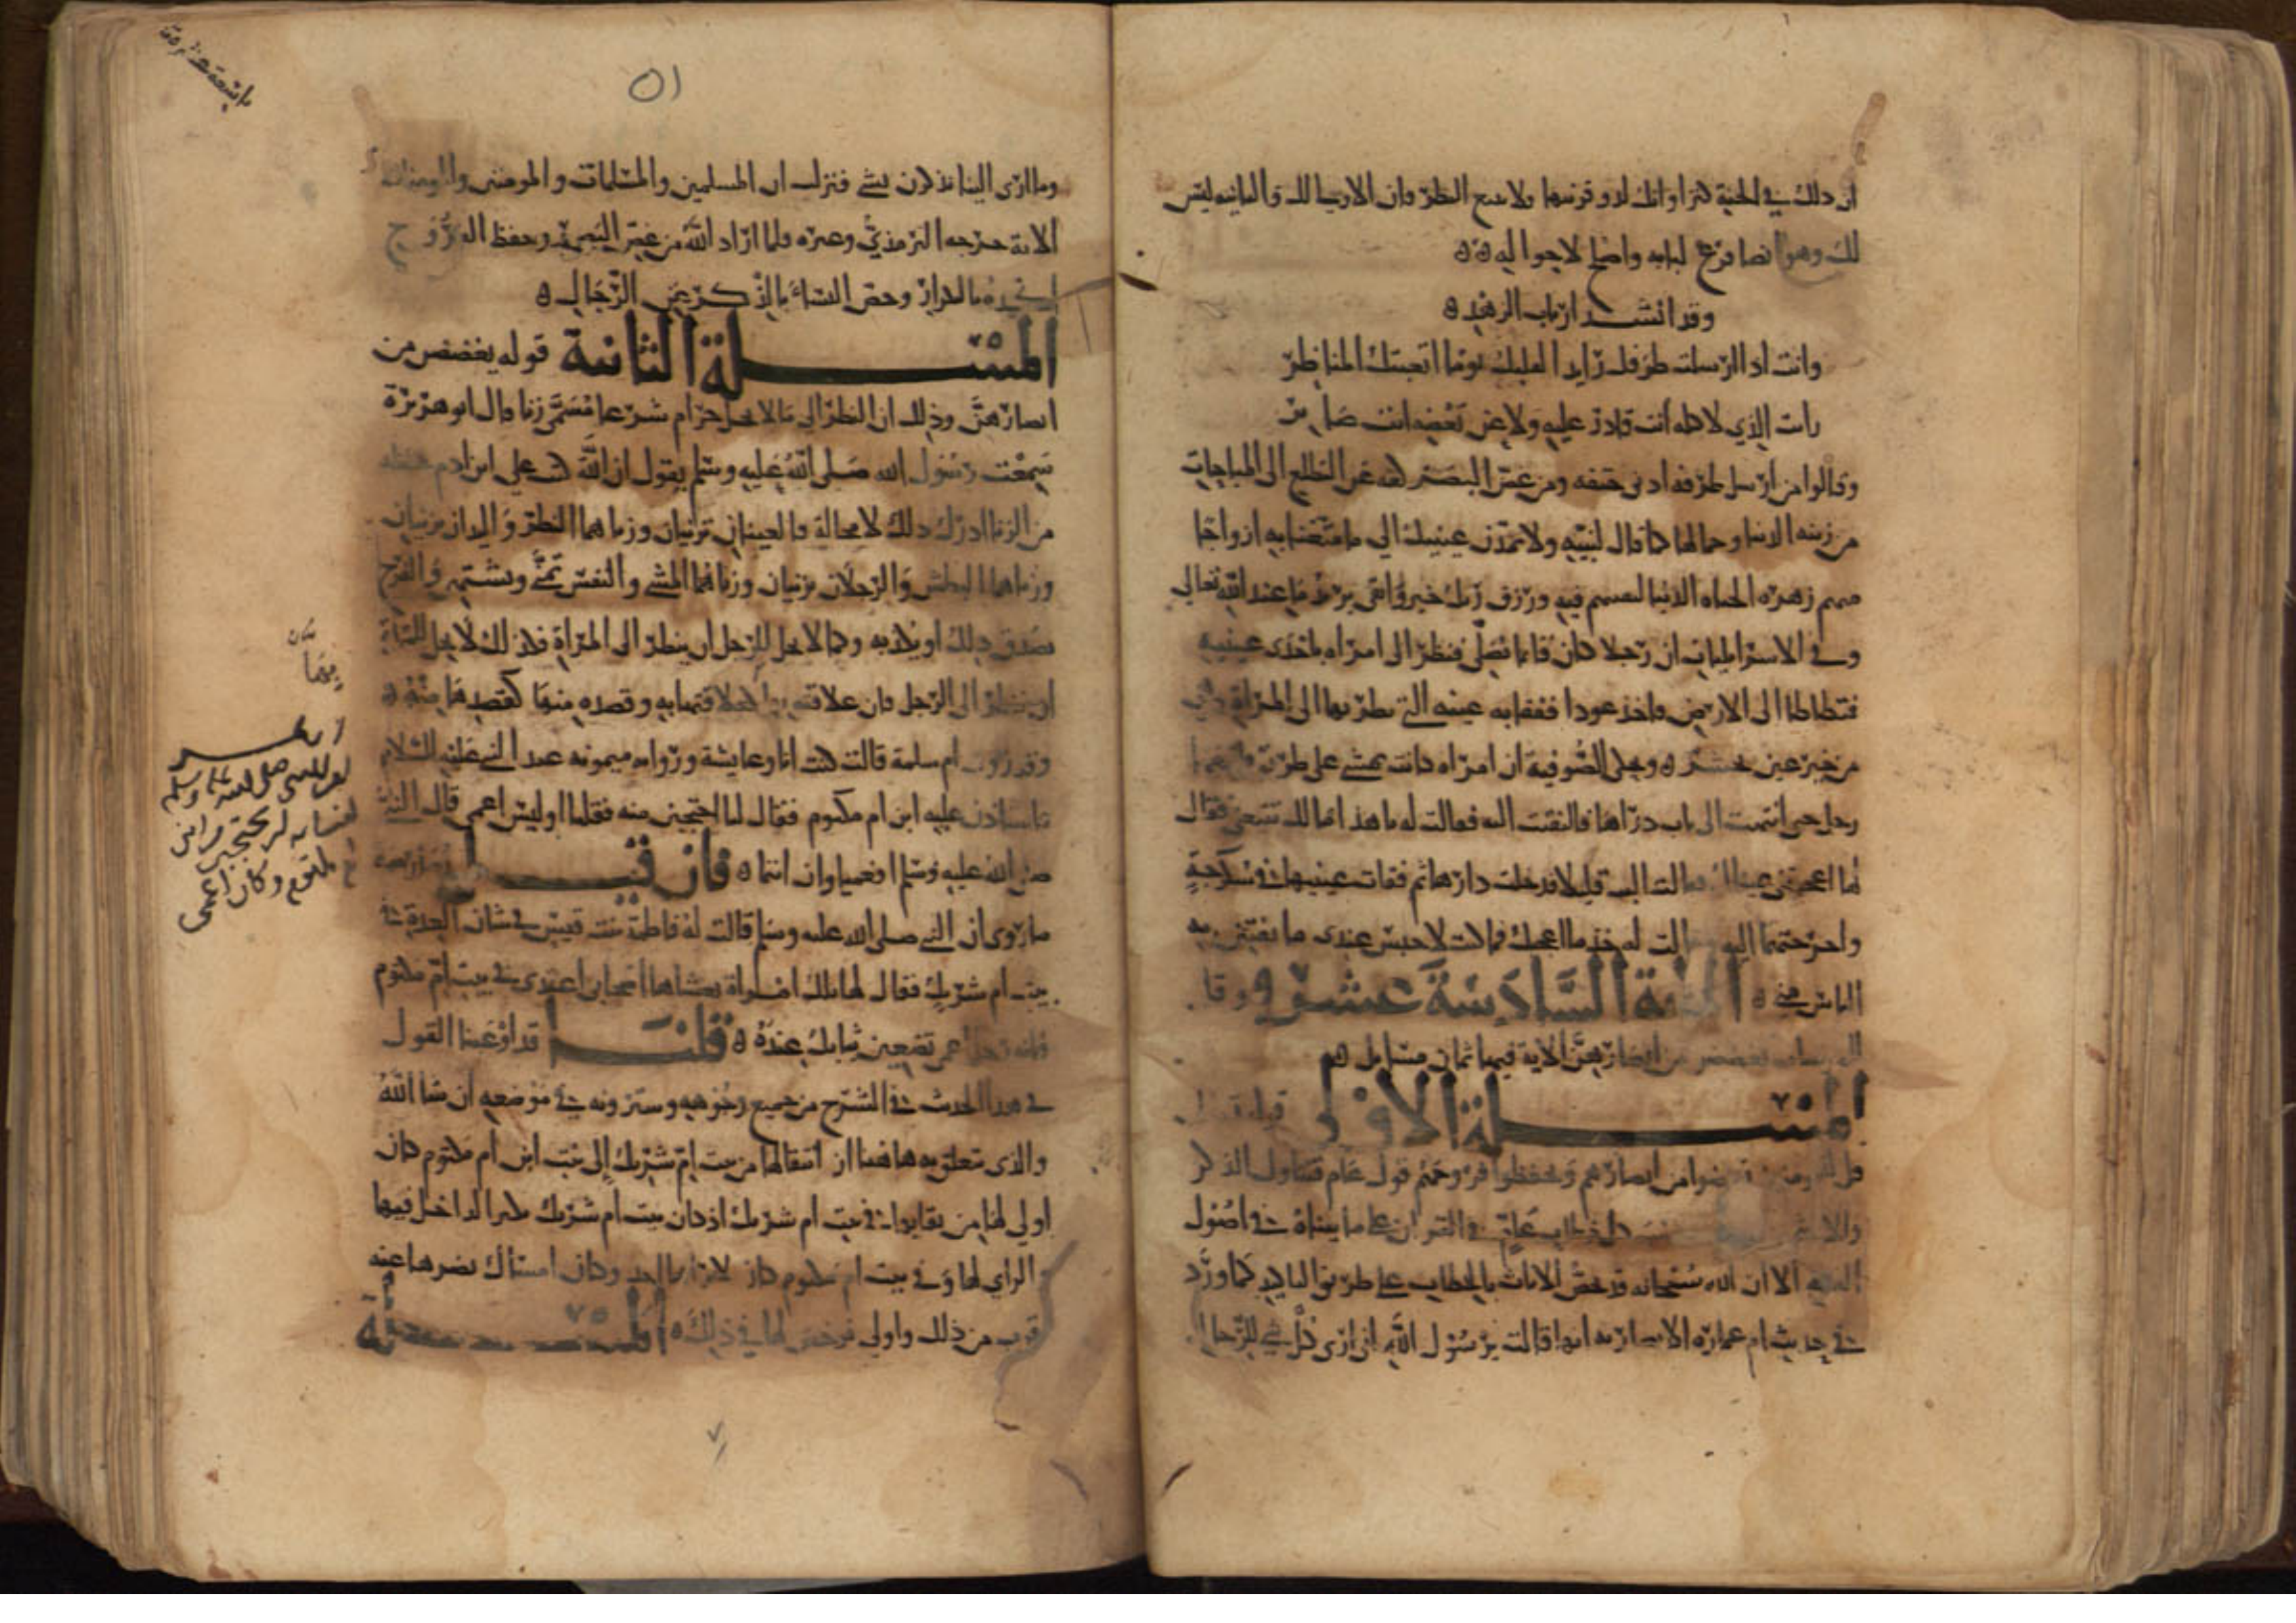 ان ذلك في الجنة كنزا وانك لذو قرنيها ولا تتبع النظرة فان الاولى لك والثانية ليس
لك وهو ايضا فزع لبابه واضح لاجواليه ه ه
وقد انشد ارباب الزهد ه
وانت اذا ارسلت طرفك رايدا لقلبك يوما اتعبتك المناظر
رايت الذي لا كله أنت قادر عليه ولا عن بعضه انت صابر
وقالوا من ارسل طرفه ادنى حتفه ومن غض البصر كفه عن التطلع الى المباحات
من زينه الدنيا وجمالها كما قال لنبيه ولا تمدن عينيك الى ما متعنا به ازواجا
منهم زهره الحياه الدنيا لنفتنهم فيه ورزق ربك خير وابقى يريد ما عند الله تعالى
وفي الاسرائيليات ان رجلا كان قايما يصلى فنظر الى امراه باحدى عينيه
فتطاطا الى الارض فاخذ عودا ففقا به عينه التي نظر بها الى المراة وهي
من خير عين تحشر ه وحكى الصوفية ان امراه كانت تمشى على طريق فاتبعها
رجل حتى انتهت الى باب دارها فالتفتت اليه فقالت له ما هذا مالك تتبعنى فقال
لها اعجبتنى عيناك فقالت البث قليلا فدخلت دارها ثم فقات عينيها في سكرجة
واخرجتهما اليه وقالت له خذ ما اعجبك فما كنت لاحبس عندى ما يفتتن به
الناس منى ه الآية السادسة عشر وقل
للمومنات يغضضن من ابصارهن الاية فيها ثمان مسايل ه
المسئلة الاولى قوله تعالى
قل للمومنين يغضوا من ابصارهم ويحفظوا فروجهم قول عام يتناول الذكر
والانثى كل خطاب عام في القران على ما بيناه في اصول
الفقه الا ان الله سبحانه قد يخص الاناث بالخطاب على طريق التاكيد كما ورد
في حديث ام عمارة الانصارية انها قالت يرسول الله انى ارى كل شي للرجال
٥١
وما ارى النسا يذكرن بشي فنزلت ان المسلمين والمسلمات والمومنين والمومنات
الاية خرجه الترمذي وغيره ولما اراد الله من غض البصر وحفظ الفروج
اكده بالتكرار وخص النساء بالذكر عن الرجال ه
المسئلة الثانية قوله يغضضن من
ابصارهن وذلك ان النظر الى ما لا يحل حرام شرعا يسمى زنا قال ابو هريرة
سمعت رسول الله صلى الله عليه وسلم يقول ان الله كتب على ابن ادم حظه
من الزنا ادرك ذلك لا محالة فالعينان تزنيان وزناهما النظر واليدان تزنيان
وزناهما البطش والرجلان تزنيان وزناهما المشى والنفس تمنى وتشتهى والفرج
يصدق ذلك او يكذبه وكما لا يحل للرجل ان ينظر الى المراة فكذلك لا يحل للمراة
ان تنظر الى الرجل فان علاقته بها كعلاقتها به وقصده منها كقصدها منه ه
وقد روت ام سلمة قالت كنت انا وعايشة وروايه ميمونه عند النبي عليه السلام
فاستاذن عليه ابن ام مكتوم فقال لنا احتجبن منه فقلنا اوليس اعمى قال النبي
صلى الله عليه وسلم افعمياوان انتما ه فان قيل يعارضه
ما روى ان النبي صلى الله عليه وسلم قالت له فاطمة بنت قيس في شان العدة في
بيت ام شريك فقال لها تلك امراة يغشاها اصحابى اعتدى في بيت ام مكتوم
فانه رجل اعمى تضعين ثيابك عنده ه قلنا قد اوعبنا القول
في هذا الحديث في الشرح من جميع وجوهه وسترونه في موضعه ان شا الله
والذى يتعلق به هاهنا ان انتقالها من بيت ام شريك إلى بيت ابن ام مكتوم كان
اولى لها من بقايها في بيت ام شريك اذ كان بيت ام شريك يكثر الداخل فيها
والراي لها وفي بيت ام مكتوم كان لا يراها احد وكان امساك بصرها عنه
اقرب من ذلك واولى فرخص لها في ذلك ه المسئلة
بقصان
انظر
امر النبي صلى الله عليه وسلم
لنسايه ليحتجبن من ابن
ام مكتوم وكان اعمى